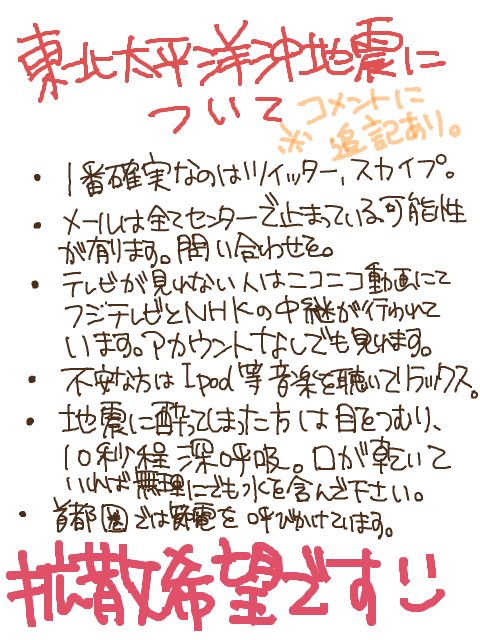 東北太平洋沖地震に
ついて
コメントに
※追記あり。
・1番確実なのはツイッター,スカイプ。
・メールは全てセンターで止まっている可能性
が有ります。問い合わせを。
・テレビが見れない人はニコニコ動画にて
フジテレビとNHKの中継が行われて
います。アカウントなしでも見れます。
・不安な方はIpod等音楽を聴いてリラックス。
・地震に酔ってしまった方は目をつむり、
10秒程深呼吸。口が乾いて
いれば無理にでも水を含んで下さい。
・首都圏では節電を呼びかけています。
拡散希望です!!